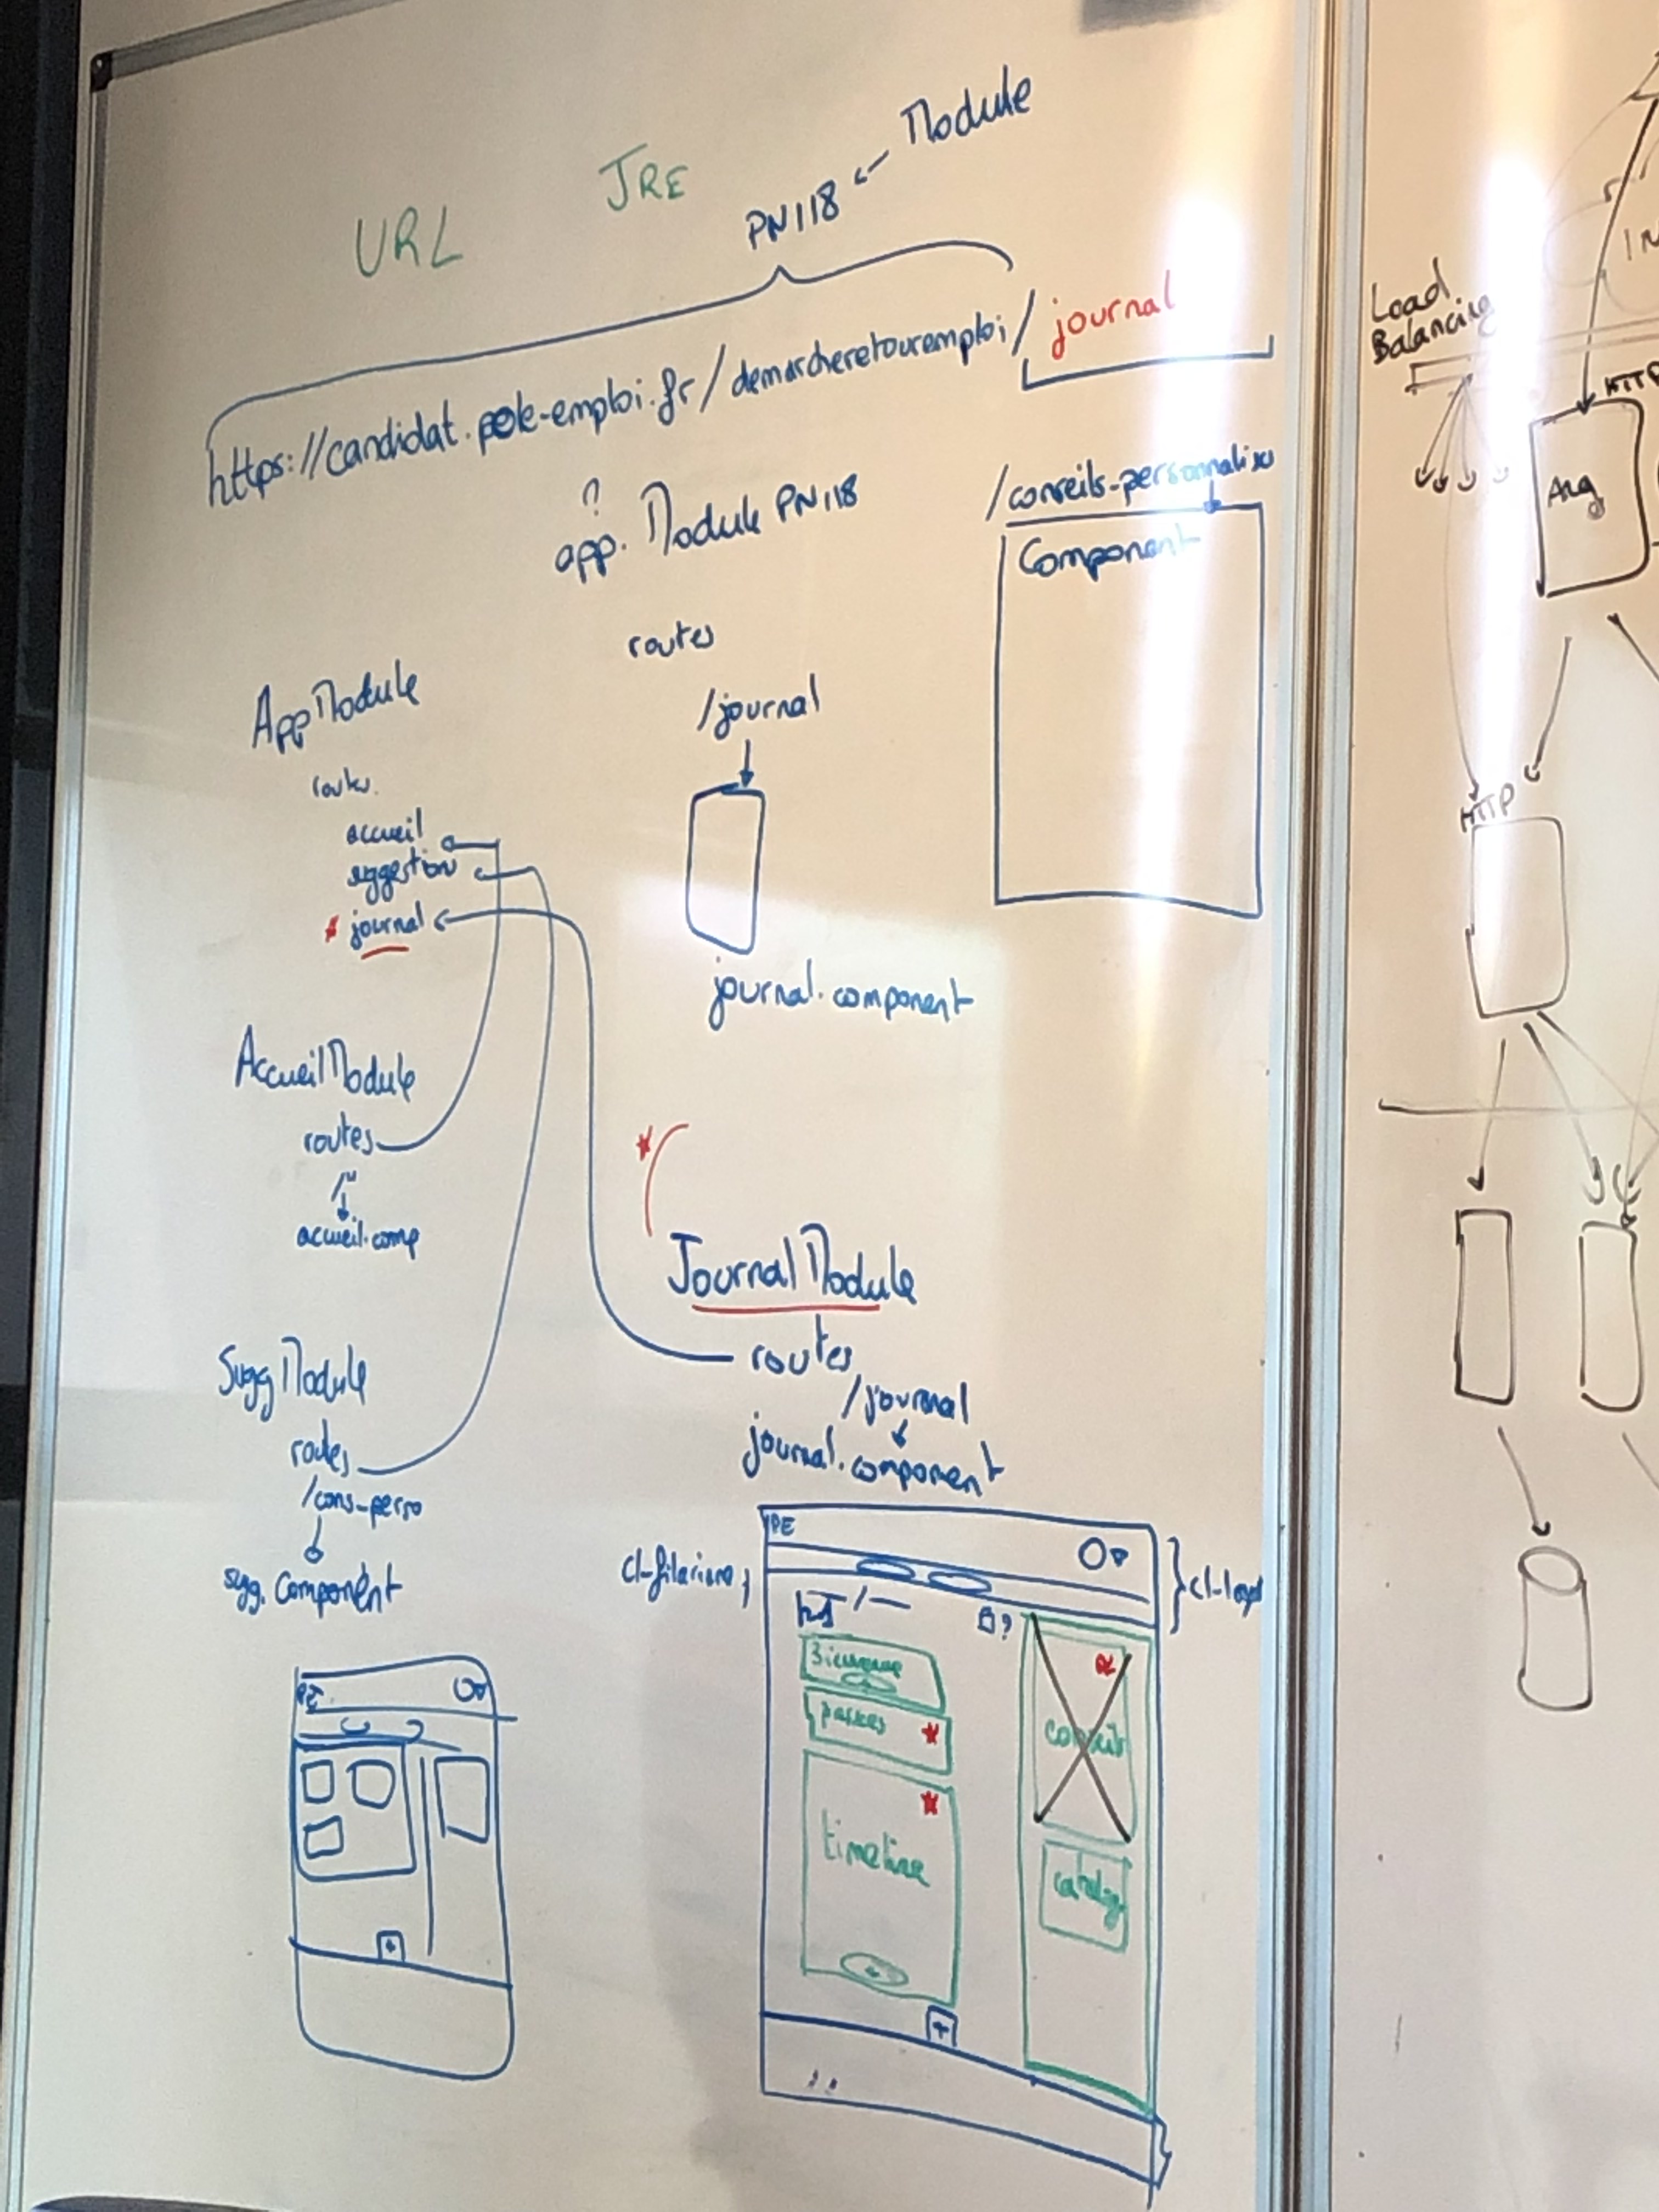 Module
JRE
URL
PN118
https://candidat.pole-emploi.fr/demarcheretouremploi/journal
app. Module PN118
/conseils-personnalises
Component
routes
/journal
journal.component
AppModule
routes.
accueil
suggestion
* journal
AccueilModule
routes
/"
accueil.comp
SuggModule
routes
/cons-perso
sugg. Component
PE
*
JournalModule
routes
/journal
journal.component
PE
cl-filariane
Bienvenue
?
conseils
timeline
catalog
+
Load
Balancing
HTTP
HTTP